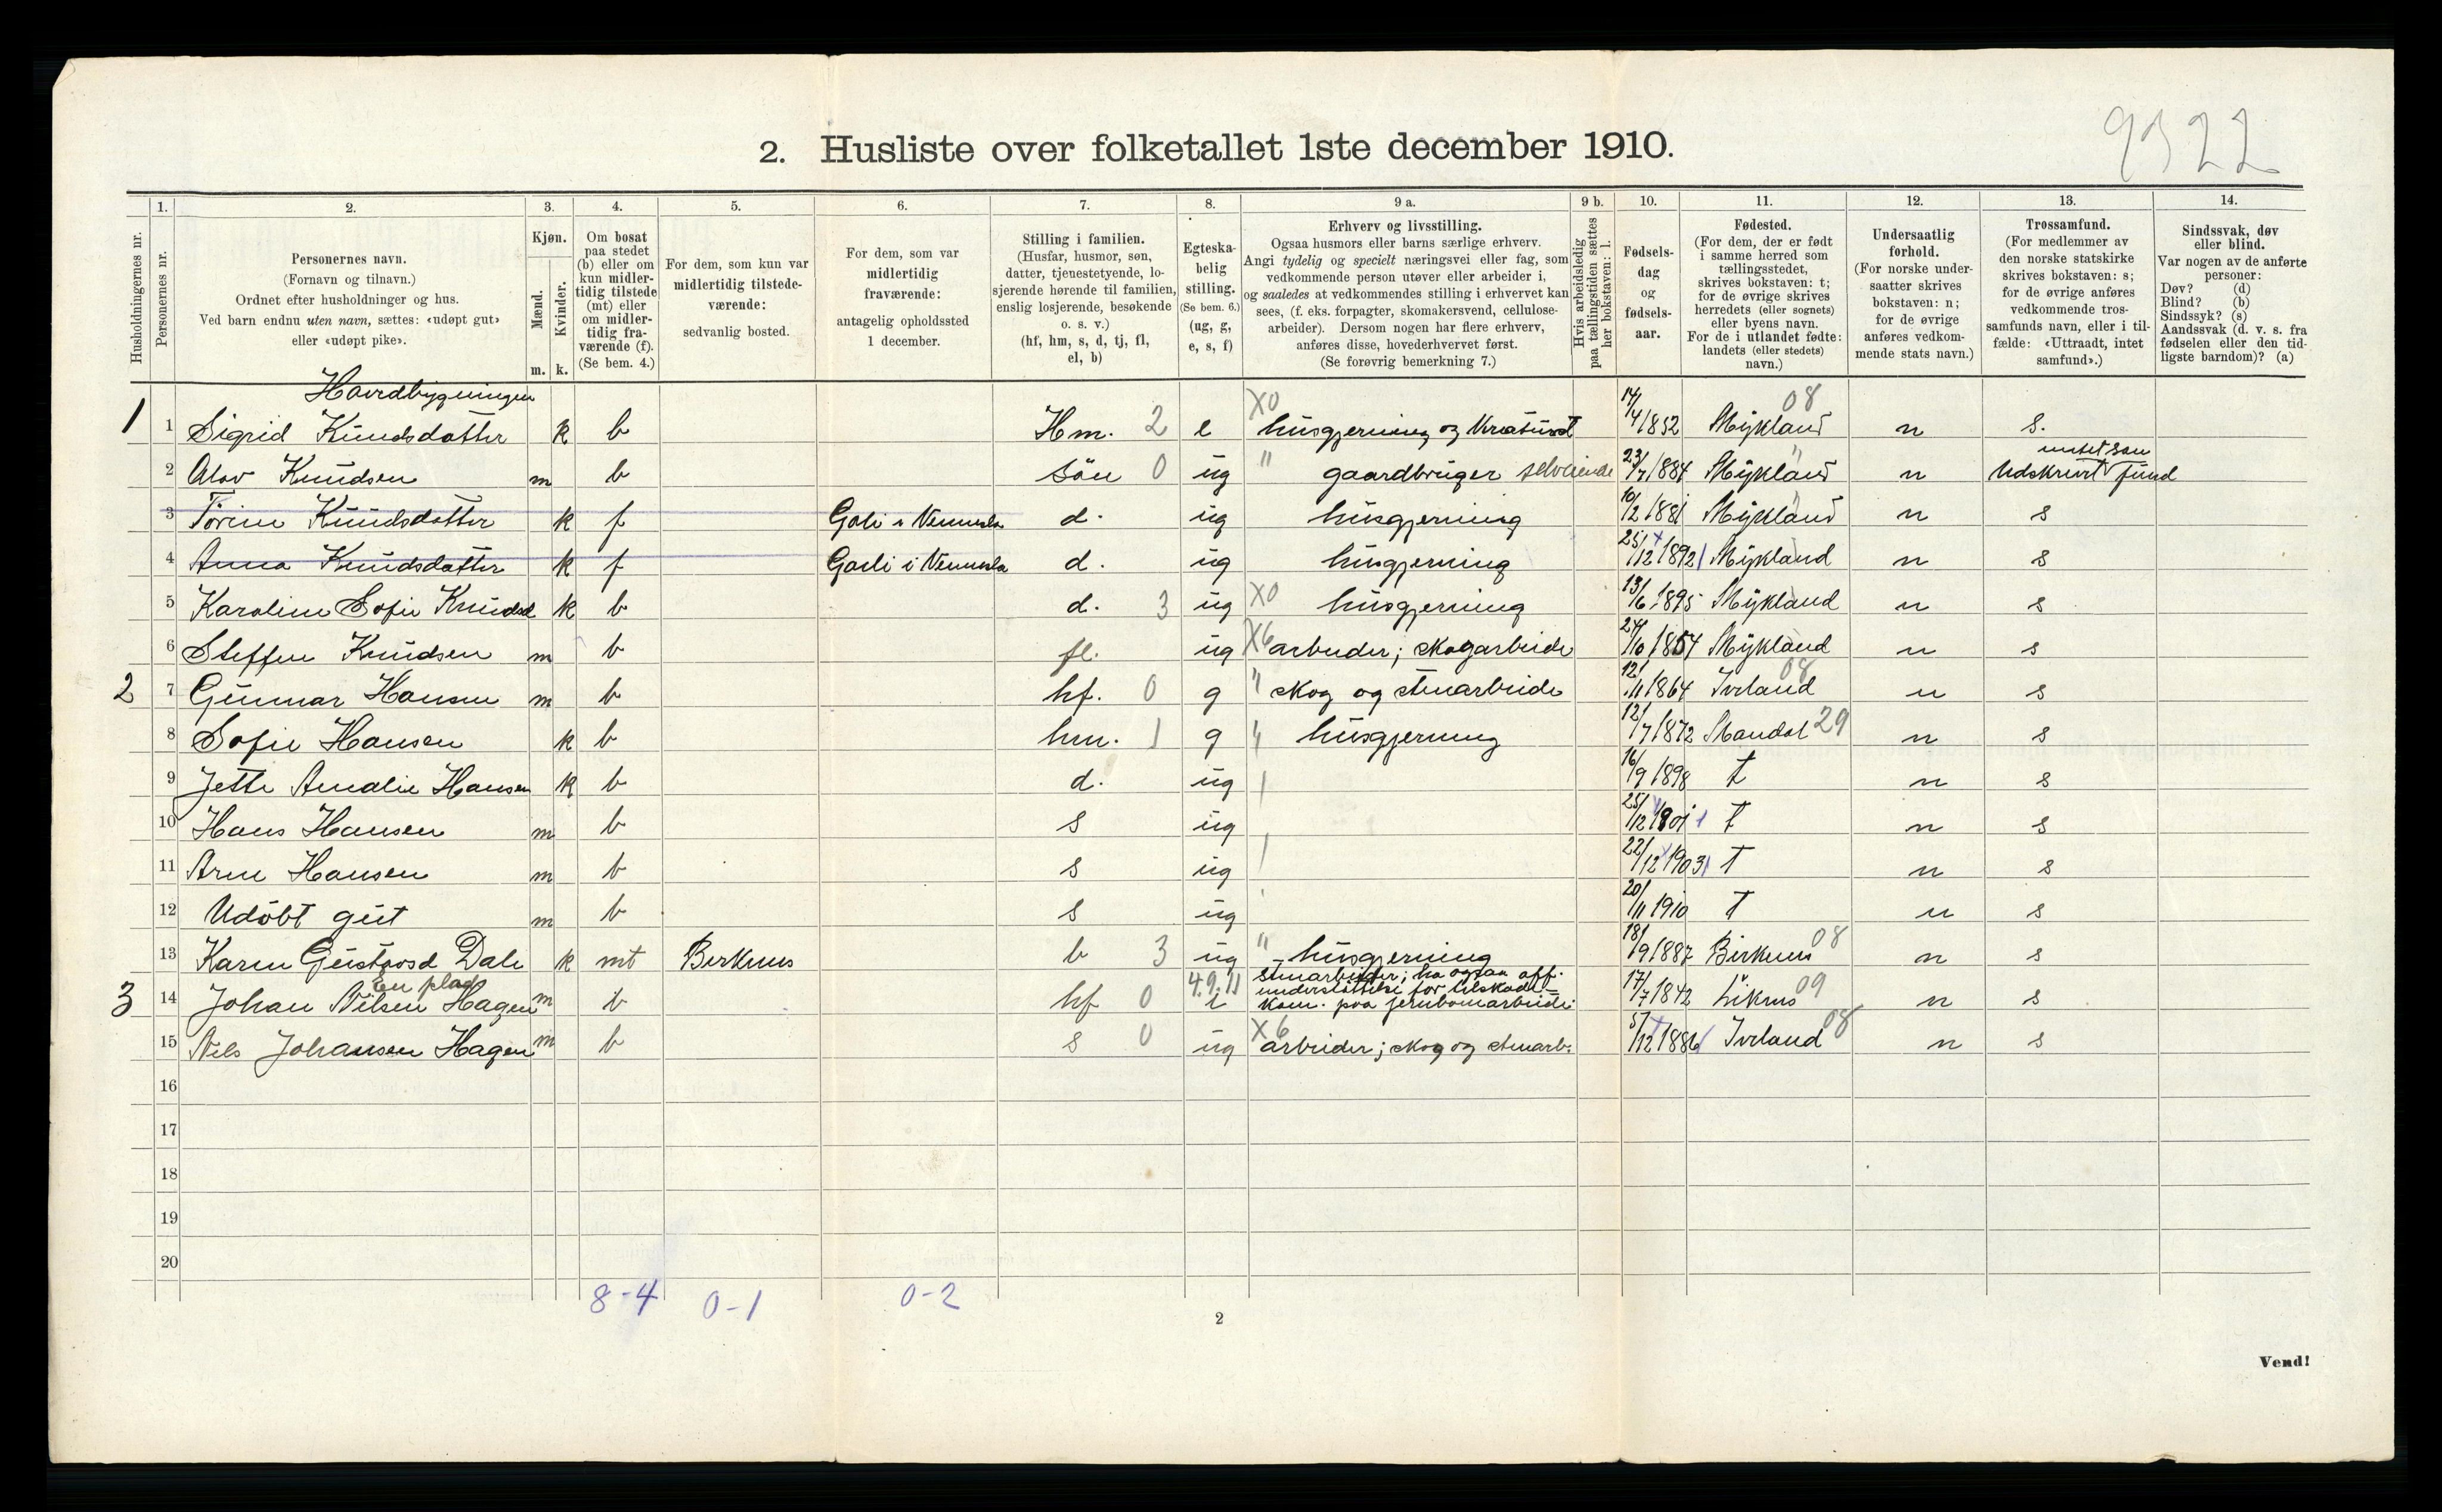 9322
2. Husliste over folketallet 1ste december 1910.
1. 2. 3. 4. 5. 6. 7. 8. 9 a. 9 b. 10. 11. 12. 13. 14.
Husholdningernes nr.
Personernes nr.
Personernes navn.
(Fornavn og tilnavn.)
Ordnet efter husholdninger og hus.
Ved barn endnu uten navn, sættes: «udøpt gut»
eller «udøpt pike».
Kjøn.
Mænd.
Kvinder.
m. k.
Om bosat
paa stedet
(b) eller om
kun midler-
tidig tilstede
(mt) eller
om midler-
tidig fra-
værende (f).
(Se bem. 4.)
For dem, som kun var
midlertidig tilstede-
værende:
sedvanlig bosted.
For dem, som var
midlertidig
fraværende:
antagelig opholdssted
1 december.
Stilling i familien.
(Husfar, husmor, søn,
datter, tjenestetyende, lo-
sjerende hørende til familien,
enslig losjerende, besøkende
o. s. v.)
(hf, hm, s, d, tj, fl,
el, b)
Egteska-
belig
stilling.
(Se bem. 6.)
(ug, g,
e, s, f)
Erhverv og livsstilling.
Ogsaa husmors eller barns særlige erhverv.
Angi tydelig og specielt næringsvei eller fag, som
vedkommende person utøver eller arbeider i,
og saaledes at vedkommendes stilling i erhvervet kan
sees, (f. eks. forpagter, skomakersvend, cellulose-
arbeider). Dersom nogen har flere erhverv,
anføres disse, hovederhvervet først.
(Se forøvrig bemerkning 7.)
Hvis arbeidsledig
paa tællingstiden sættes
her bokstaven: l.
Fødsels-
dag
og
fødsels-
aar.
Fødested.
(For dem, der er født
i samme herred som
tællingsstedet,
skrives bokstaven: t;
for de øvrige skrives
herredets (eller sognets)
eller byens navn.
For de i utlandet fødte:
landets (eller stedets)
navn.)
Undersaatlig
forhold.
(For norske under-
saatter skrives
bokstaven: n;
for de øvrige
anføres vedkom-
mende stats navn.)
Trossamfund.
(For medlemmer av
den norske statskirke
skrives bokstaven: s;
for de øvrige anføres
vedkommende tros-
samfunds navn, eller i til-
fælde: «Uttraadt, intet
samfund».)
Sindssvak, døv
eller blind.
Var nogen av de anførte
personer:
Døv? (d)
Blind? (b)
Sindssyk? (s)
Aandssvak (d. v. s. fra
fødselen eller den tid-
ligste barndom)? (a)
Havrdbygningen
1 1 Sigrid Knudsdatter k b Hm. 2 e X0 husgjerning og 14/4 1852 Mykland 08 n s.
2 Olav Knudsen m b sön 0 ug " gaardbruger selveiende 23/7 1884 Mykland " n Udskrevt intet samfund
3 Torine Knudsdatter k f Gali i Vennesla d. ug husgjerning 10/2 1881 Mykland n s
4 Anna Knudsdatter k f Garli i Vennesla d. ug husgjerning 25/12 1892 Mykland n s
5 Karoline Sofie Knudsd k b d. 3 ug X0 husgjerning 13/6 1895 Mykland n s
6 Steffen Knudsen m b fl. ug X6 arbeider; skogarbeide 24/10 1854 Mykland n s
2 7 Gunnar Hansen m b hf. 0 g " skog og stenarbeide 12/11 1864 Iveland 08 n s
8 Sofie Hansen k b hm. 1 g " husgjerning 12/7 1872 Mandal 29 n s
9 Jette Amalie Hansen k b d. ug 16/9 1898 t n s
10 Hans Hansen m b s ug 25/12 1901 t n s
11 Arne Hansen m b s ug 22/12 1903 t n s
12 Udöbt gut m b s ug 20/11 1910 t n s
13 Karen Gustavsd Dale k mt Birkenes b 3 ug " husgjerning 18/9 1887 Birkenes 08 n s
En plads
3 14 Johan Nilsen Hagen m b hf 0 4.9.11 e stenarbeider; har ogsaa off. understöttelse for tilskade- kom. paa jernbanearbeide 17/7 1842 09 n s
15 Nils Johansen Hagen m b s 0 ug X6 arbeider; skog og stenarb. 5/12 1886 Iveland 08 n s
16
17
18
19
20
8-4 0-1 0-2
2
Vend!